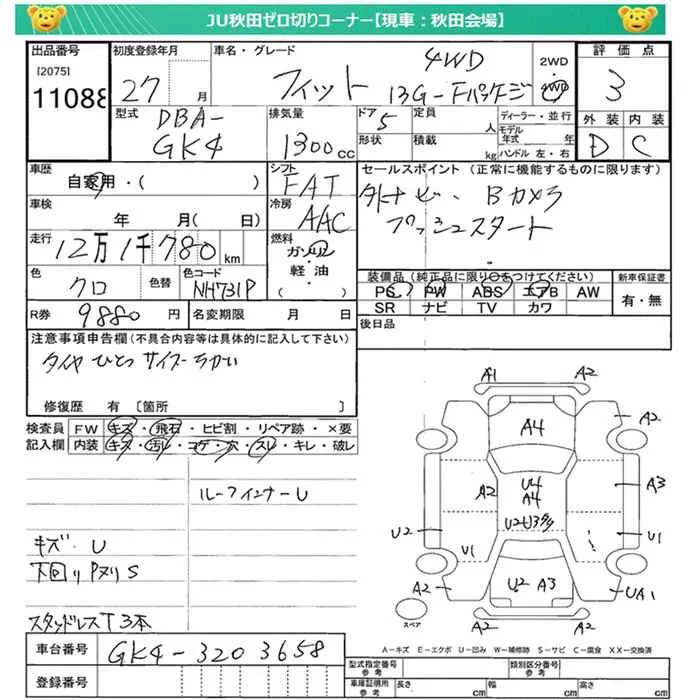 JU秋田ゼロ切りコーナー【現車：秋田会場】
出品番号
[2075]
11088
初度登録年月
27 月
車名・グレード
フィット
4WD
13G-Fパッケージ
2WD
4WD
評価点
3
外装 内装
D C
型式
DBA-
GK4
排気量
1300cc
ドア
5
形状
定員
人
積載
kg
ディーラー・並行
モデル年式 年
ハンドル 左・右
車歴
自家用・( )
シフト
FAT
セールスポイント(正常に機能するものに限ります)
Bカメラ
プッシュスタート
車検
年 月(日)
冷房
AAC
走行
12万1千780 km
燃料
ガソリン
軽油
( )
色
クロ
色替
色コード
NH731P
装備品(純正品に限り○をつけてください)
PS PW ABS エアB AW
SR ナビ TV カワ
新車保証書
有・無
R券
9880 円
名変期限 月 日
後日品
注意事項申告欄(不具合内容等は具体的に記入して下さい)
タイヤ ひとつ サイズ ちがい
修復歴 有 [箇所 ]
検査員記入欄
FW キズ・飛石・ヒビ割・リペア跡・×要
内装 キズ・汚レ・コゲ・穴・スレ・キレ・破レ
ルーフインナーU
キズ・U
下回りPヌリS
スタッドレスT3本
A1
A2
A4
A2
A2
U4
A4
U2U3多
A3
U2
U1
U1
A2
U2 A3
UA1
A2
A2
スペア
A－キズ E－エクボ U－凹み W－補修跡 S－サビ C－腐食 XX－交換済
車台番号
GK4-3203658
登録番号
型式指定番号
参考
類別区分番号
参考
車庫証明用
参考
長さ cm
幅 cm
高さ cm